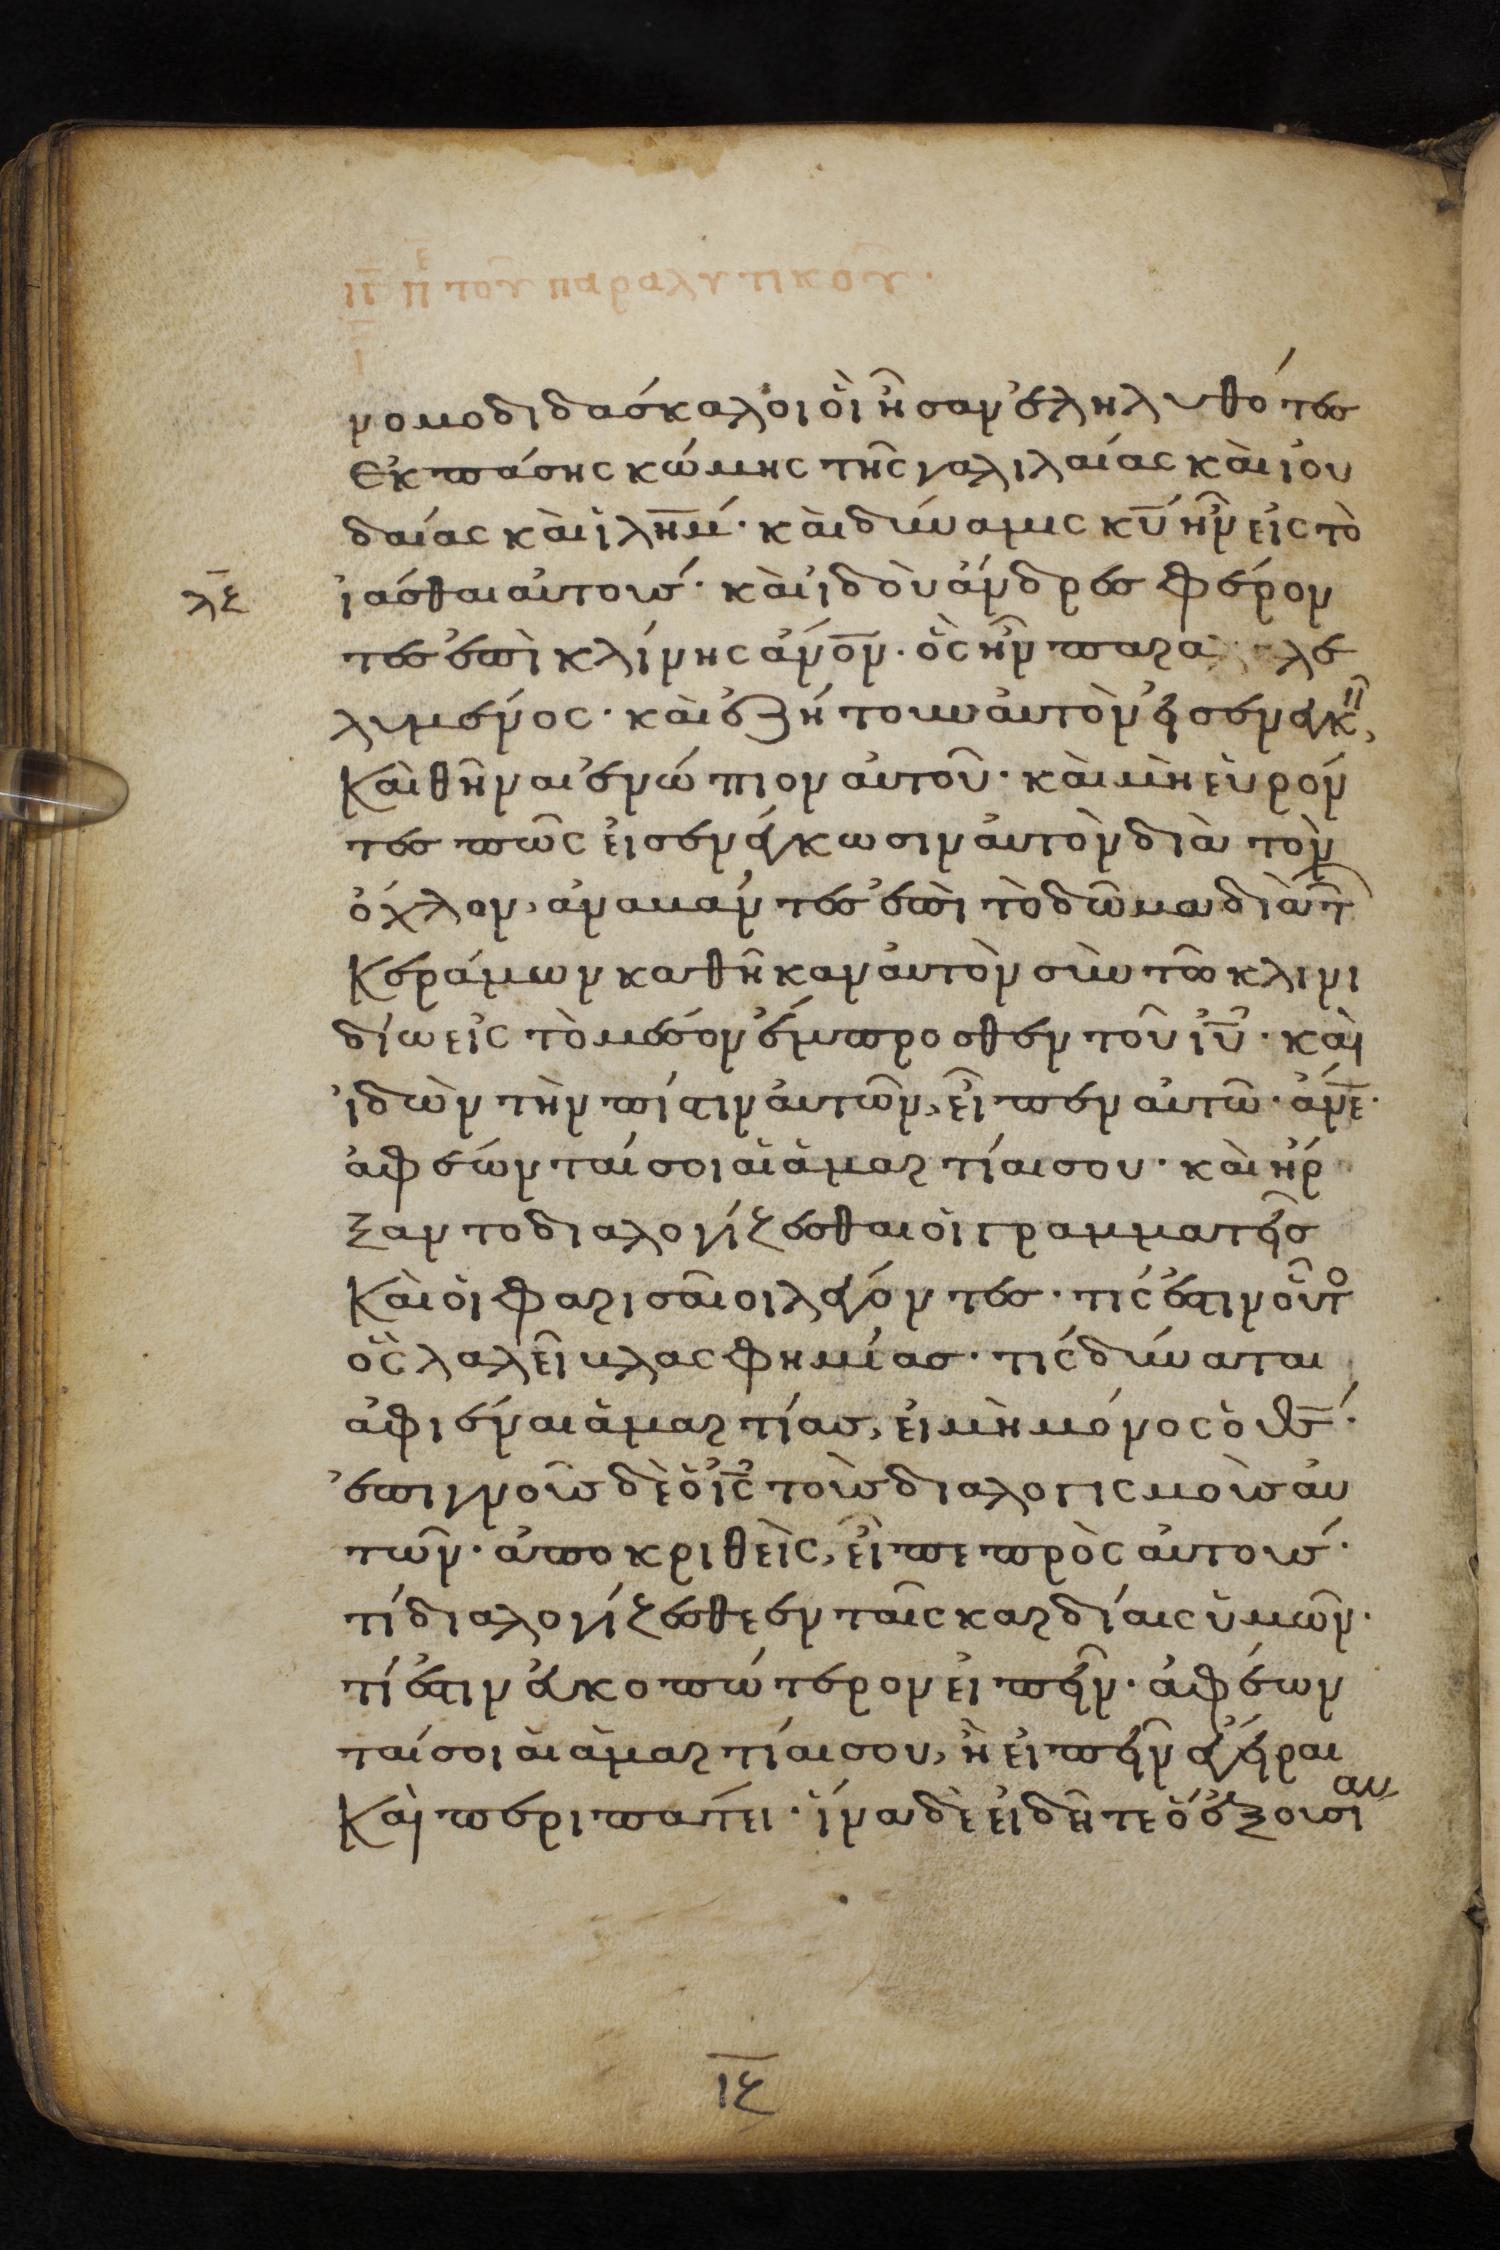 ιγ πε του παραλυτικοῦ·
ι
νομοδιδάσκαλοι οἳ ἦσαν ἐληλυθότες
ἐκ πάσης κώμης τῆς γαλιλαίας καὶ ἰου
δαίας καὶ ἰλη̅μ· καὶ δύναμις κ̅υ ἦν εἰς τὸ
λ̅ε
ἰάσθαι αὐτούς· καὶ ἰδοὺ ἄνδρες φέρον
τες ἐπὶ κλίνης ἄν̅ο̅ν· ὃς ἦν παρα λε
λυμένος· καὶ ἐζήτουν αὐτὸν εἰσενεγκεῖ,
καὶ θῆναι ἐνώπιον αὐτοῦ· καὶ μὴ εὑρόν
τες πῶς εἰσενέγκωσιν αὐτὸν διὰ τὸν
ὄχλον, ἀναβάντες ἐπὶ τὸ δῶμα διὰ τῶ
κεράμων καθῆκαν αὐτὸν σὺν τῶ κλινι
δίω εἰς τὸ μέσον ἔμπροσθεν τοῦ ι̅υ· καὶ
ἰδὼν τὴν πίστιν αὐτῶν, εἶπεν αὐτῶ· ἄν̅ε·
ἀφέωνταί σοι αἱ ἁμαρτίαι σου· καὶ ἤρ
ξαντο διαλογίζεσθαι οἱ γραμματεῖς
καὶ οἱ φαρισαῖοι λέγοντες· τίς ἐστιν οὗτο
ὃς λαλεῖ βλασφημίας· τίς δύναται
ἀφιέναι ἁμαρτίας, εἰ μὴ μόνος ὁ θ̅ς·
ἐπιγνοῦς δὲ ὁ ι̅ς τοὺς διαλογισμοὺς αὐ
τῶν· ἀποκριθεὶς, εἶπε πρὸς αὐτούς·
τί διαλογίζεσθε ἐν ταῖς καρδίαις ὑμῶν·
τί ἐστιν εὐκοπώτερον εἰπεῖν· ἀφέων
ταί σοι αἱ ἁμαρτίαι σου, ἢ εἰπεῖν ἔγειραι
καὶ περιπάτει· ἵνα δὲ εἰδῆτε ὅ ἐξουσίαν
ι̅ε